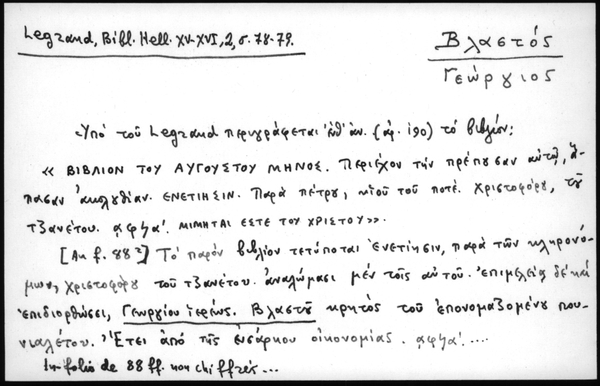 Legrand, Bibl. Hell. XV-XVI, 2, σ. 78-79.
Βλαστός
Γεώργιος
Ὑπό τοῦ Legrand περιγράφεται ἐνθ' ἀν. (ἀρ. 190) τό βιβλίον:
« ΒΙΒΛΙΟΝ ΤΟΥ ΑΥΓΟΥΣΤΟΥ ΜΗΝΟΣ. Περιέχον τήν πρέπουσαν αὐτῷ, ἅ-
πασαν ἀκολουθίαν. ΕΝΕΤΙΗΣΙΝ. Παρά πέτρου, υἱοῦ τοῦ ποτέ. χριστοφόρου, τοῦ
τζανέτου. ͵αφξα΄. ΜΙΜΗΤΑΙ ΕΣΤΕ ΤΟΥ ΧΡΙΣΤΟΥ».
[Au f. 88] Τό παρόν βιβλίον τετύπωται Ἐνετίησιν, παρά τῶν κληρονό-
μων, χριστοφόρου τοῦ τζανέτου. ἀναλώμασι μέν τοῖς αὐτοῦ. ἐπιμελείᾳ δέ καί
ἐπιδιορθώσει, Γεωργίου ἱερέως. Βλαστοῦ κρητός τοῦ ἐπονομαζομένου που-
νιαλέτου. Ἔτει ἀπό τῆς ἐνσάρκου οἰκονομίας. ͵αφξα΄. ....
In folio de 88 ff. non chiffrés ...